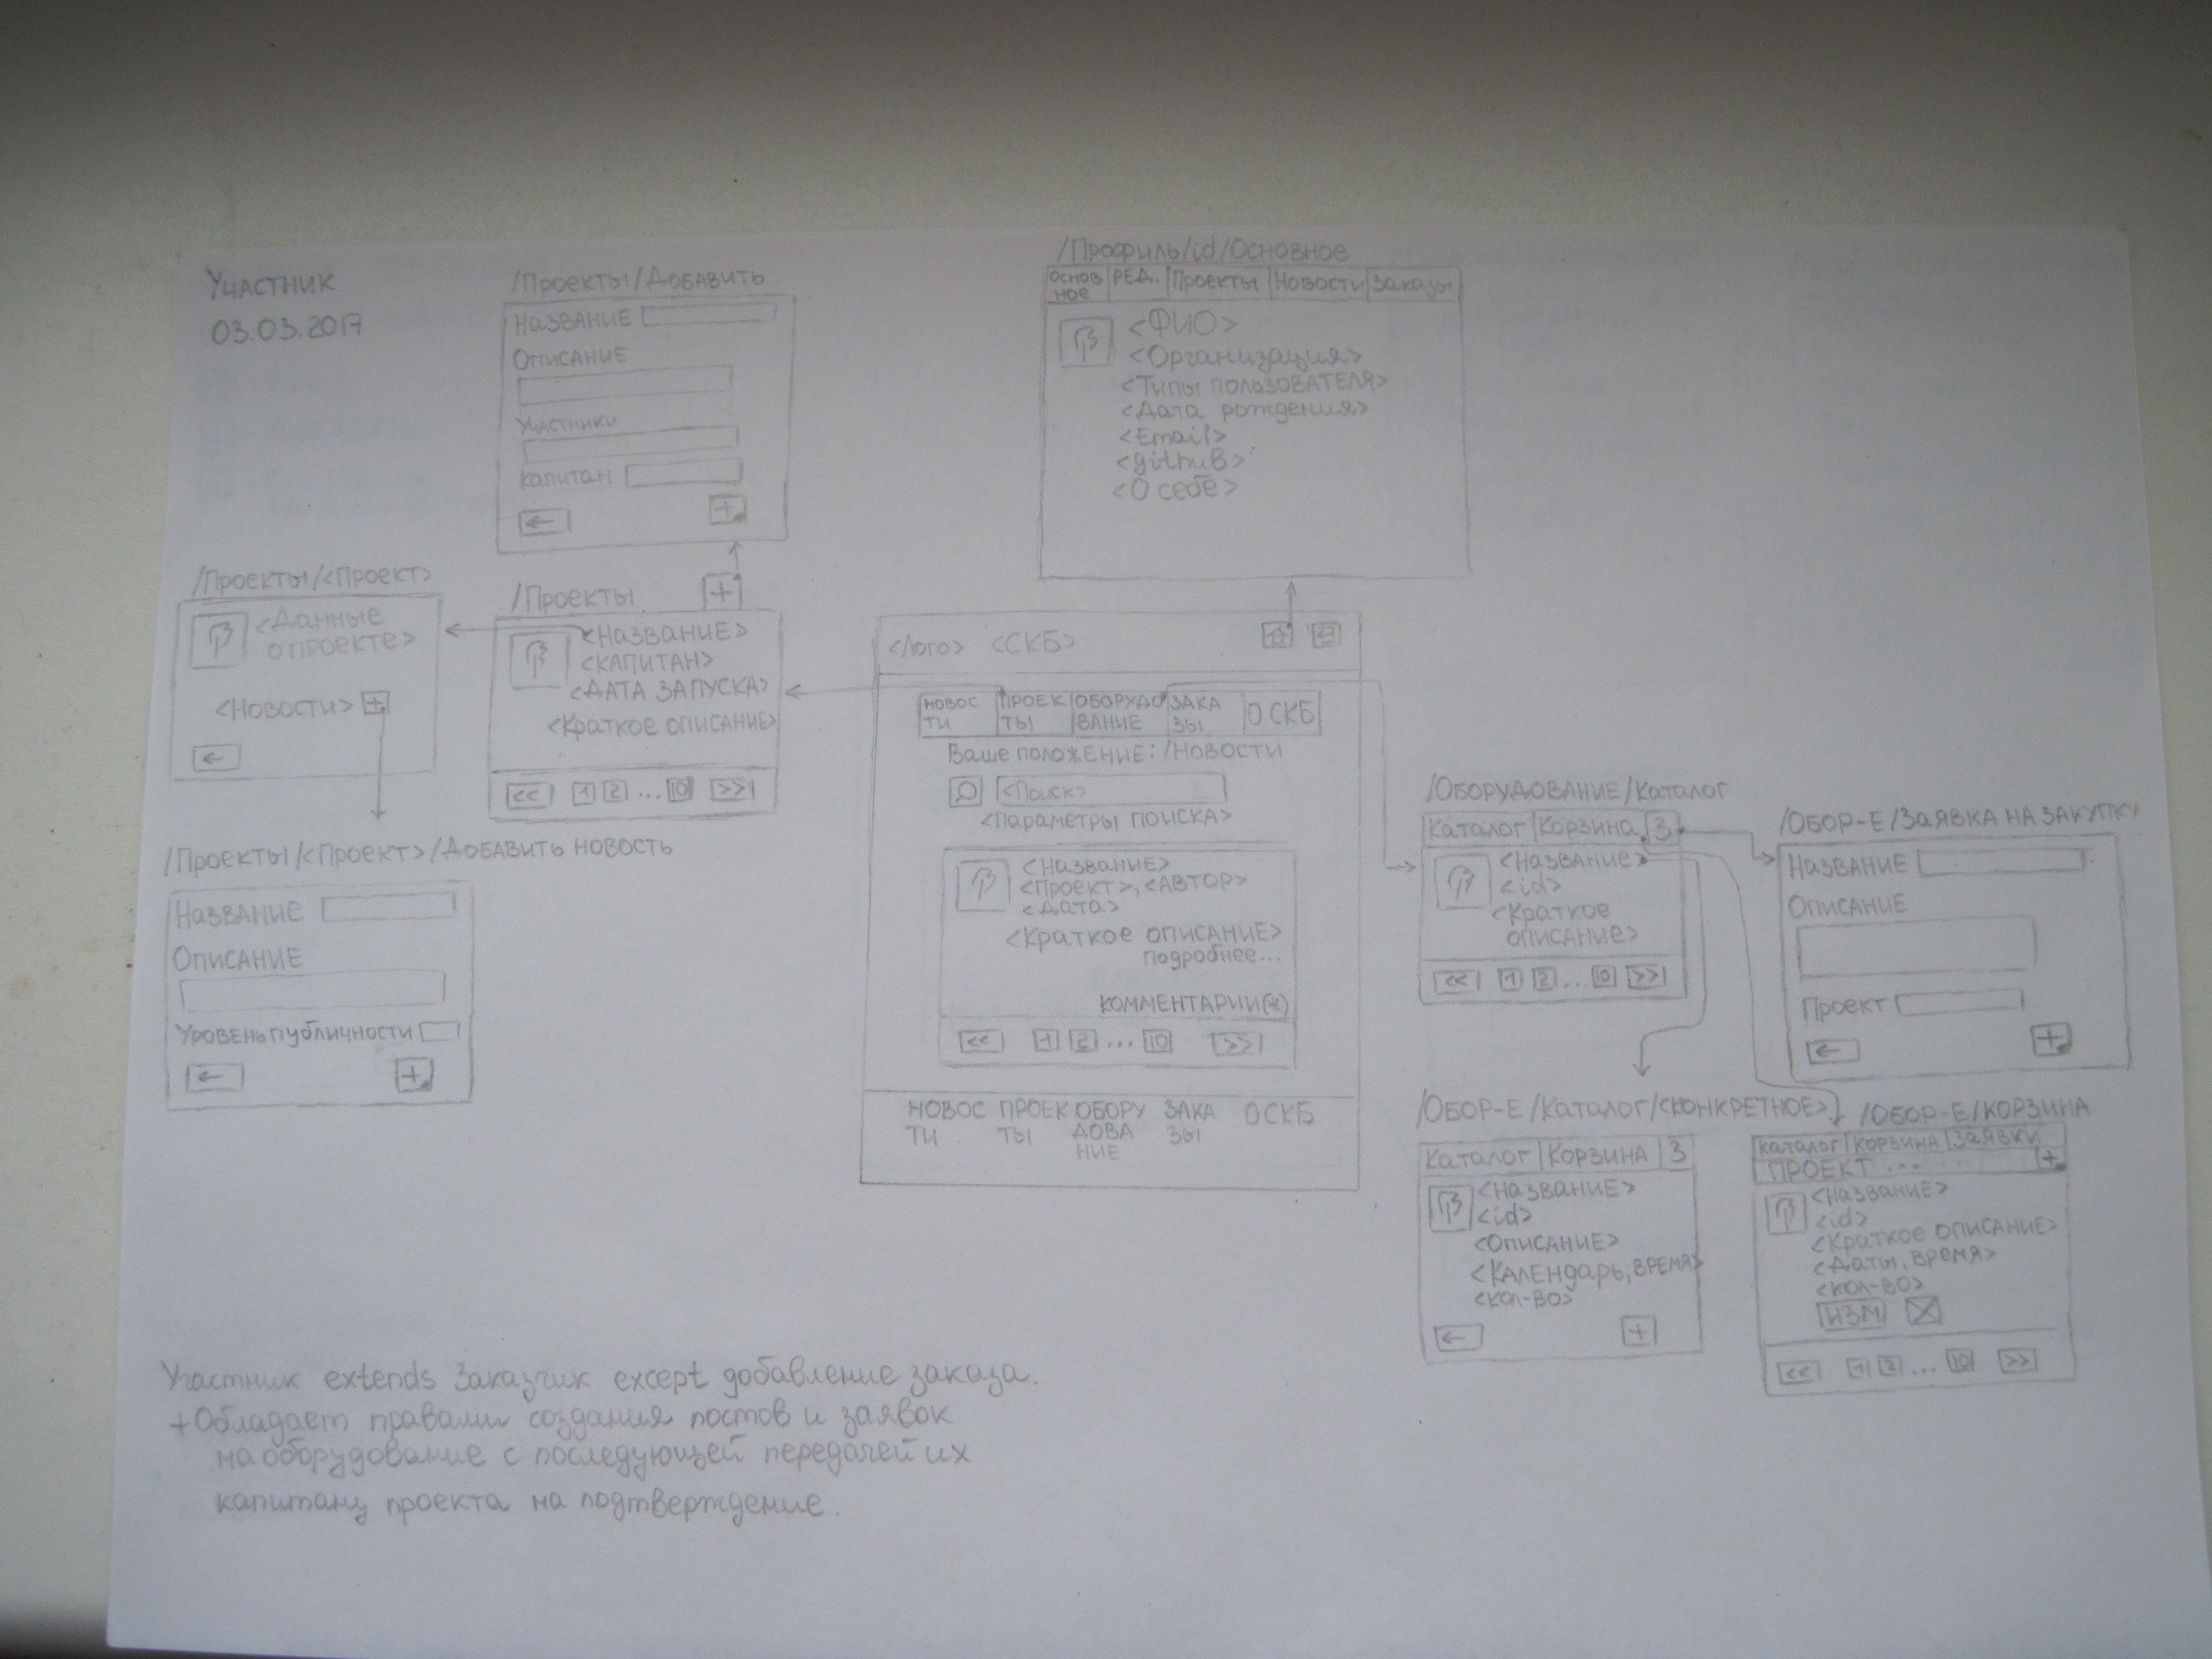 Участник
03.03.2017
/Проекты/Добавить
Название
Описание
Участники
Капитан
←
+
/Профиль/id/Основное
Основ
ное
РЕД.
Проекты
Новости
Заказы
<ФИО>
<Организация>
<Типы пользователя>
<Дата рождения>
<Email>
<githuB>
<О себе>
/Проекты/<Проект>
<Данные
о проекте>
<Новости> +
←
/Проекты
+
<Название>
<Капитан>
<Дата запуска>
<Краткое описание>
<< 1 2 ... 10 >>
/Проекты/<Проект>/Добавить новость
Название
Описание
Уровень публичности
←
+
<Лого> <СКБ>
Новос
ти
Проек
ты
Оборудо
вание
Зака
зы
О СКБ
Ваше положение: /Новости
<Поиск>
<Параметры поиска>
<Название>
<Проект>, <Автор>
<Дата>
<Краткое описание>
подробнее...
Комментарии(*)
<< 1 2 ... 10 >>
Новос
ти
Проек
ты
Обору
дова
ние
Зака
зы
О СКБ
/Оборудование/Каталог
Каталог Корзина З
<Название>
<id>
<Краткое
описание>
<< 1 2 ... 10 >>
/Обор-е/Заявка на закупку
Название
Описание
Проект
←
+
/Обор-е/Каталог/<конкретное>
Каталог Корзина З
<Название>
<id>
<Описание>
<Календарь, время>
<кол-во>
←
+
/Обор-е/Корзина
Каталог Корзина Заявки
Проект ... +
<Название>
<id>
<Краткое описание>
<Даты, время>
<кол-во>
ИЗМ
<< 1 2 ... 10 >>
Участник extends Заказчик except добавление заказа.
+Обладает правами создания постов и заявок
на оборудование с последующей передачей их
капитану проекта на подтверждение.